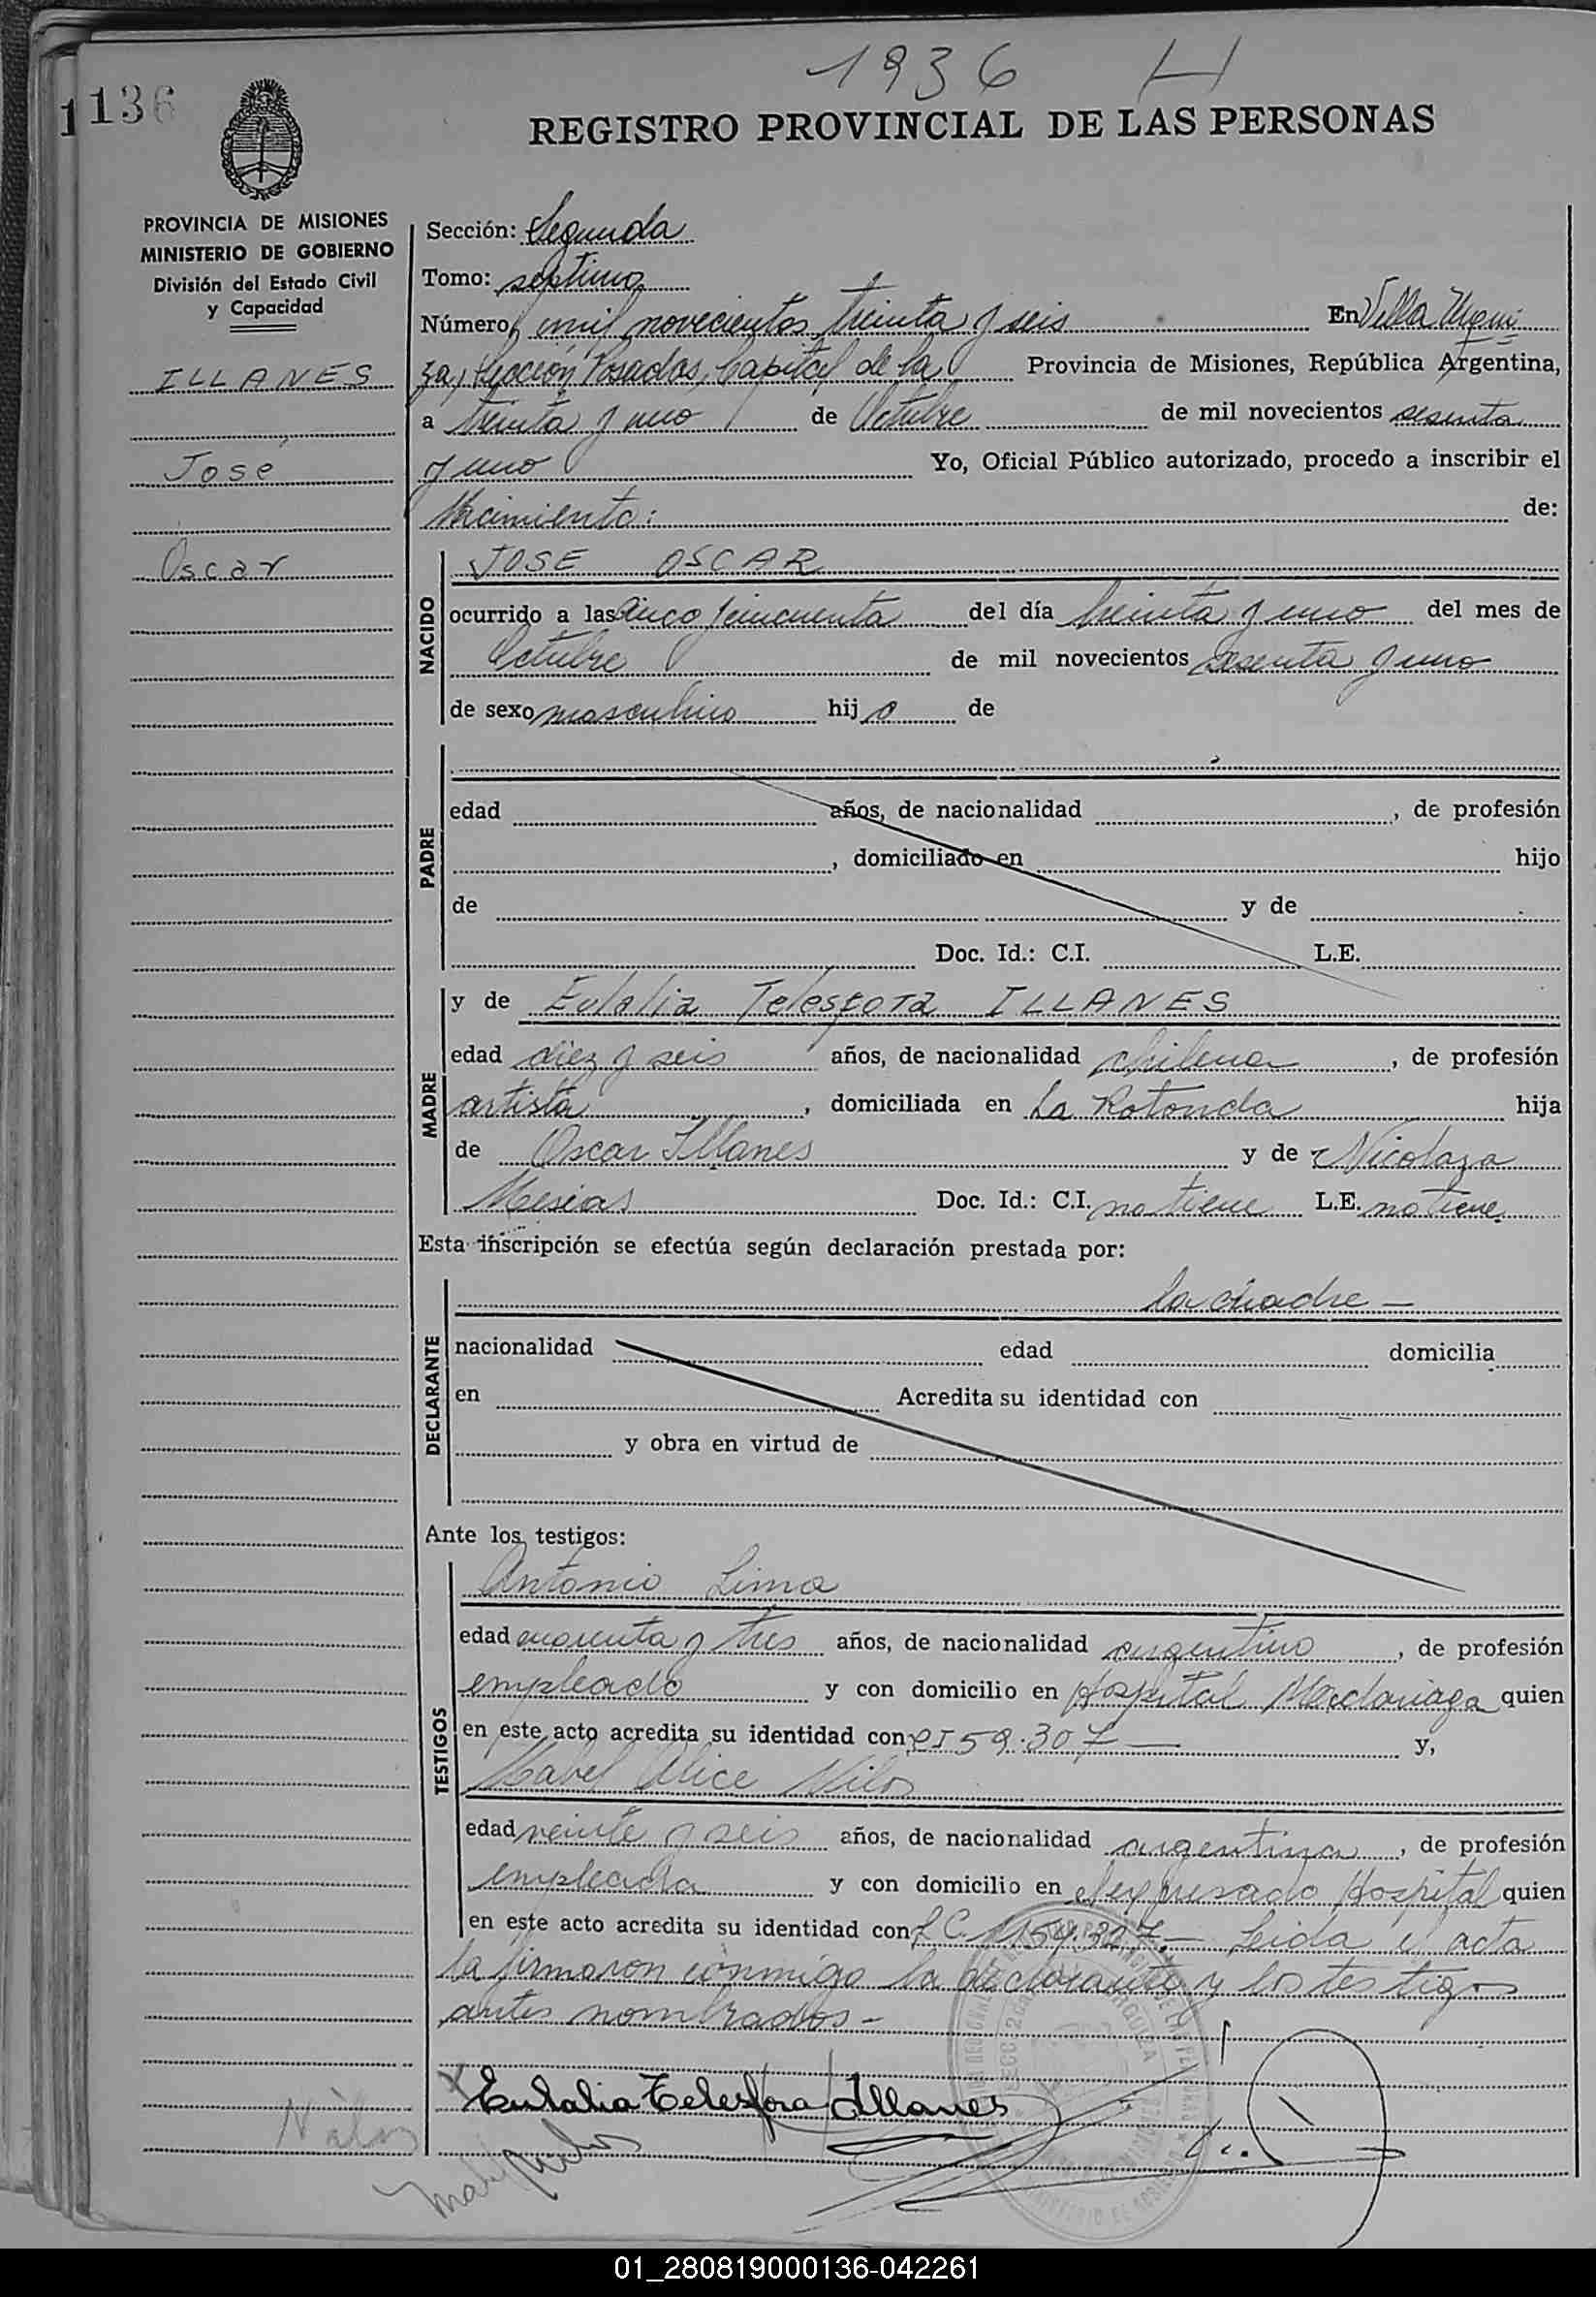 1936 H
1136
REGISTRO PROVINCIAL DE LAS PERSONAS
PROVINCIA DE MISIONES
MINISTERIO DE GOBIERNO
División del Estado Civil
y Capacidad
ILLANES
José
Oscar
Sección: Segunda
Tomo: septimo
Número mil novecientos treinta y seis En Villa Urqui
za, Sección Posadas, Capital de la Provincia de Misiones, República Argentina,
a treinta y uno de Octubre de mil novecientos sesenta
y uno Yo, Oficial Público autorizado, procedo a inscribir el
Nacimiento: de:
NACIDO
JOSE OSCAR
ocurrido a las cinco y cincuenta del día treinta y uno del mes de
Octubre de mil novecientos sesenta y uno
de sexo masculino hijo de
PADRE
edad años, de nacionalidad , de profesión
, domiciliado en hijo
de y de
Doc. Id.: C.I. L.E.
MADRE
y de Eulalia Telesfora ILLANES
edad diez y seis años, de nacionalidad chilena , de profesión
artista , domiciliada en La Rotonda hija
de Oscar Illanes y de Nicolaza
Mesias Doc. Id.: C.I. no tiene L.E. no tiene.
Esta inscripción se efectúa según declaración prestada por:
DECLARANTE
la madre —
nacionalidad edad domicilia
en Acredita su identidad con
y obra en virtud de
Ante los testigos:
TESTIGOS
Antonio Lima
edad cuarenta y tres años, de nacionalidad argentino , de profesión
empleado y con domicilio en Hospital Madariaga quien
en este acto acredita su identidad con CI 59.307 — y,
Mabel Alice Vilos
edad veinte y seis años, de nacionalidad argentina , de profesión
empleada y con domicilio en el expresado Hospital quien
en este acto acredita su identidad con L.C. 1.154.327.— Leida el acta
la firmaron conmigo la declarante y los testigos
antes nombrados -
Eulalia Telesfora Illanes
01_280819000136-042261